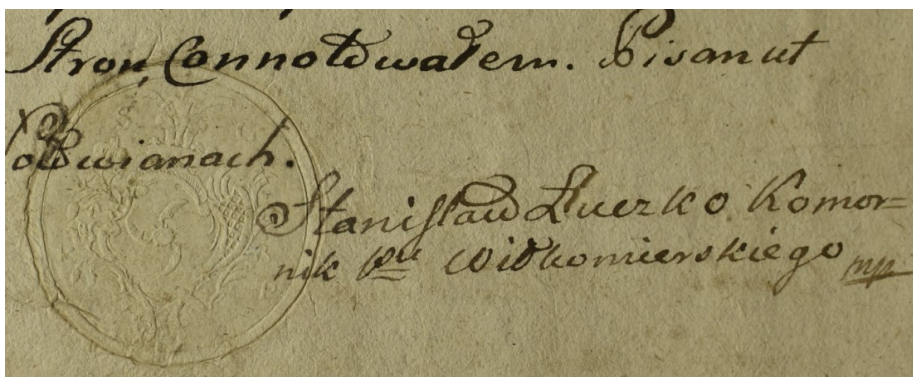 Stron Connotowałem. Pisan ut
Stanisław Łuczko Komor=
nik Ptu Wiłkomierskiego mp